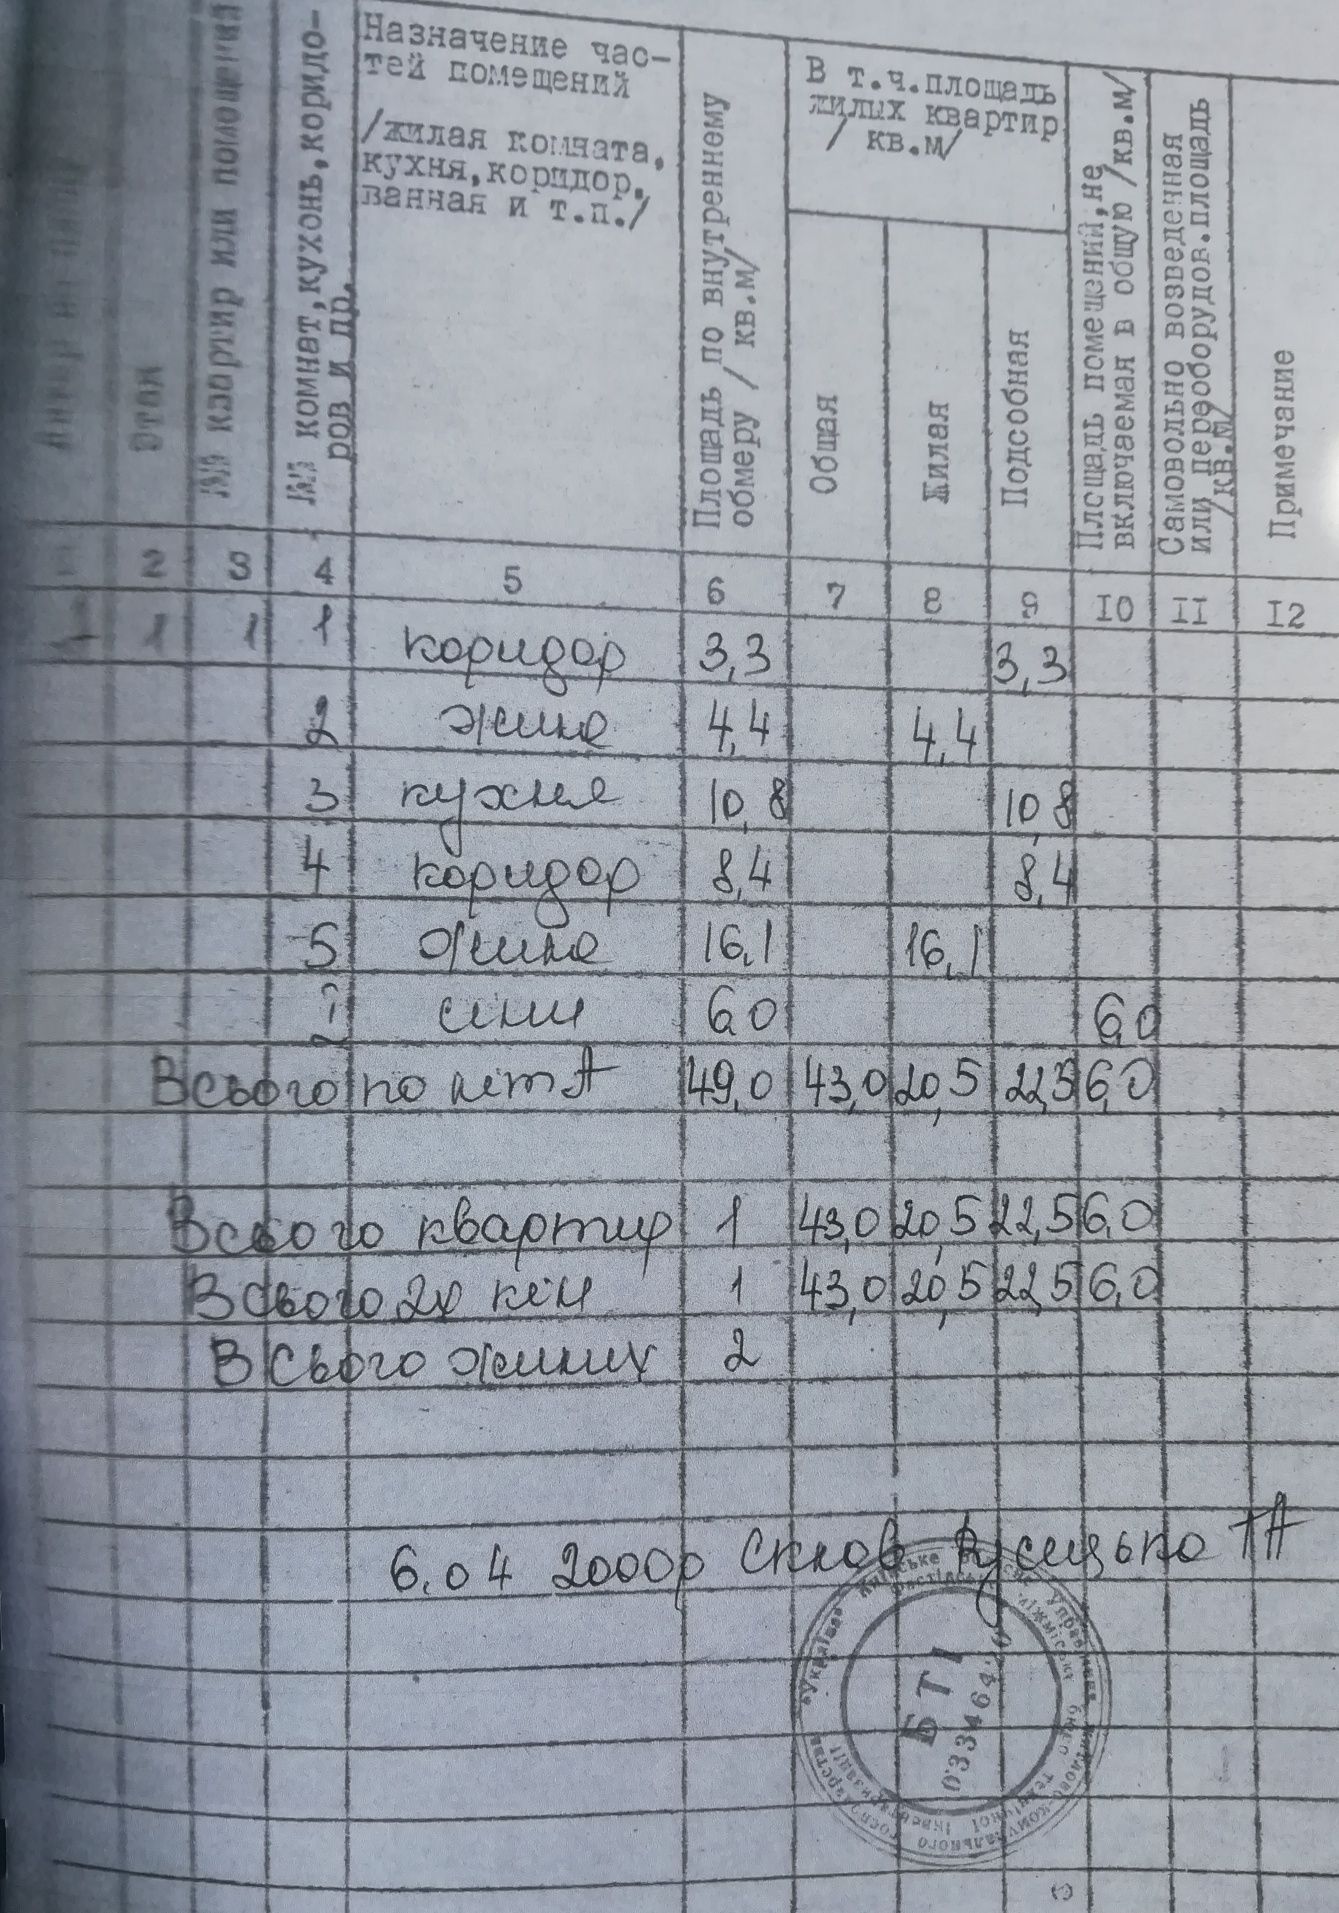 Литер по плану
Этаж
№№ квартир или помещений
№№ комнат, кухонь, коридо-
ров и пр.
Назначение час-
тей помещений
/жилая комната,
кухня, коридор,
ванная и т.п./
Площадь по внутреннему
обмеру / кв.м/
В т.ч.площадь
жилых квартир
/ кв.м/
Общая
Жилая
Подсобная
Площадь помещений, не
включаемая в общую /кв.м/
Самовольно возведенная
или переоборудов.площадь
/кв.м/
Примечание
2 3 4 5 6 7 8 9 10 11 12
1 1 1 коридор 3,3 3,3
2 жила 4,4 4,4
3 кухня 10,8 10,8
4 коридор 8,4 8,4
5 жила 16,1 16,1
сіни 6,0 6,0
Всього по літ А 49,0 43,0 20,5 22,5 6,0
Всього квартир 1 43,0 20,5 22,5 6,0
Всього 2х кім 1 43,0 20,5 22,5 6,0
Всього жилих 2
6.04 2000р Склав
БТІ